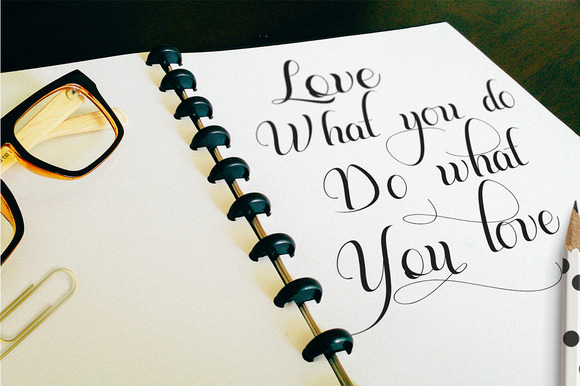 Love
What you do
Do what
You love